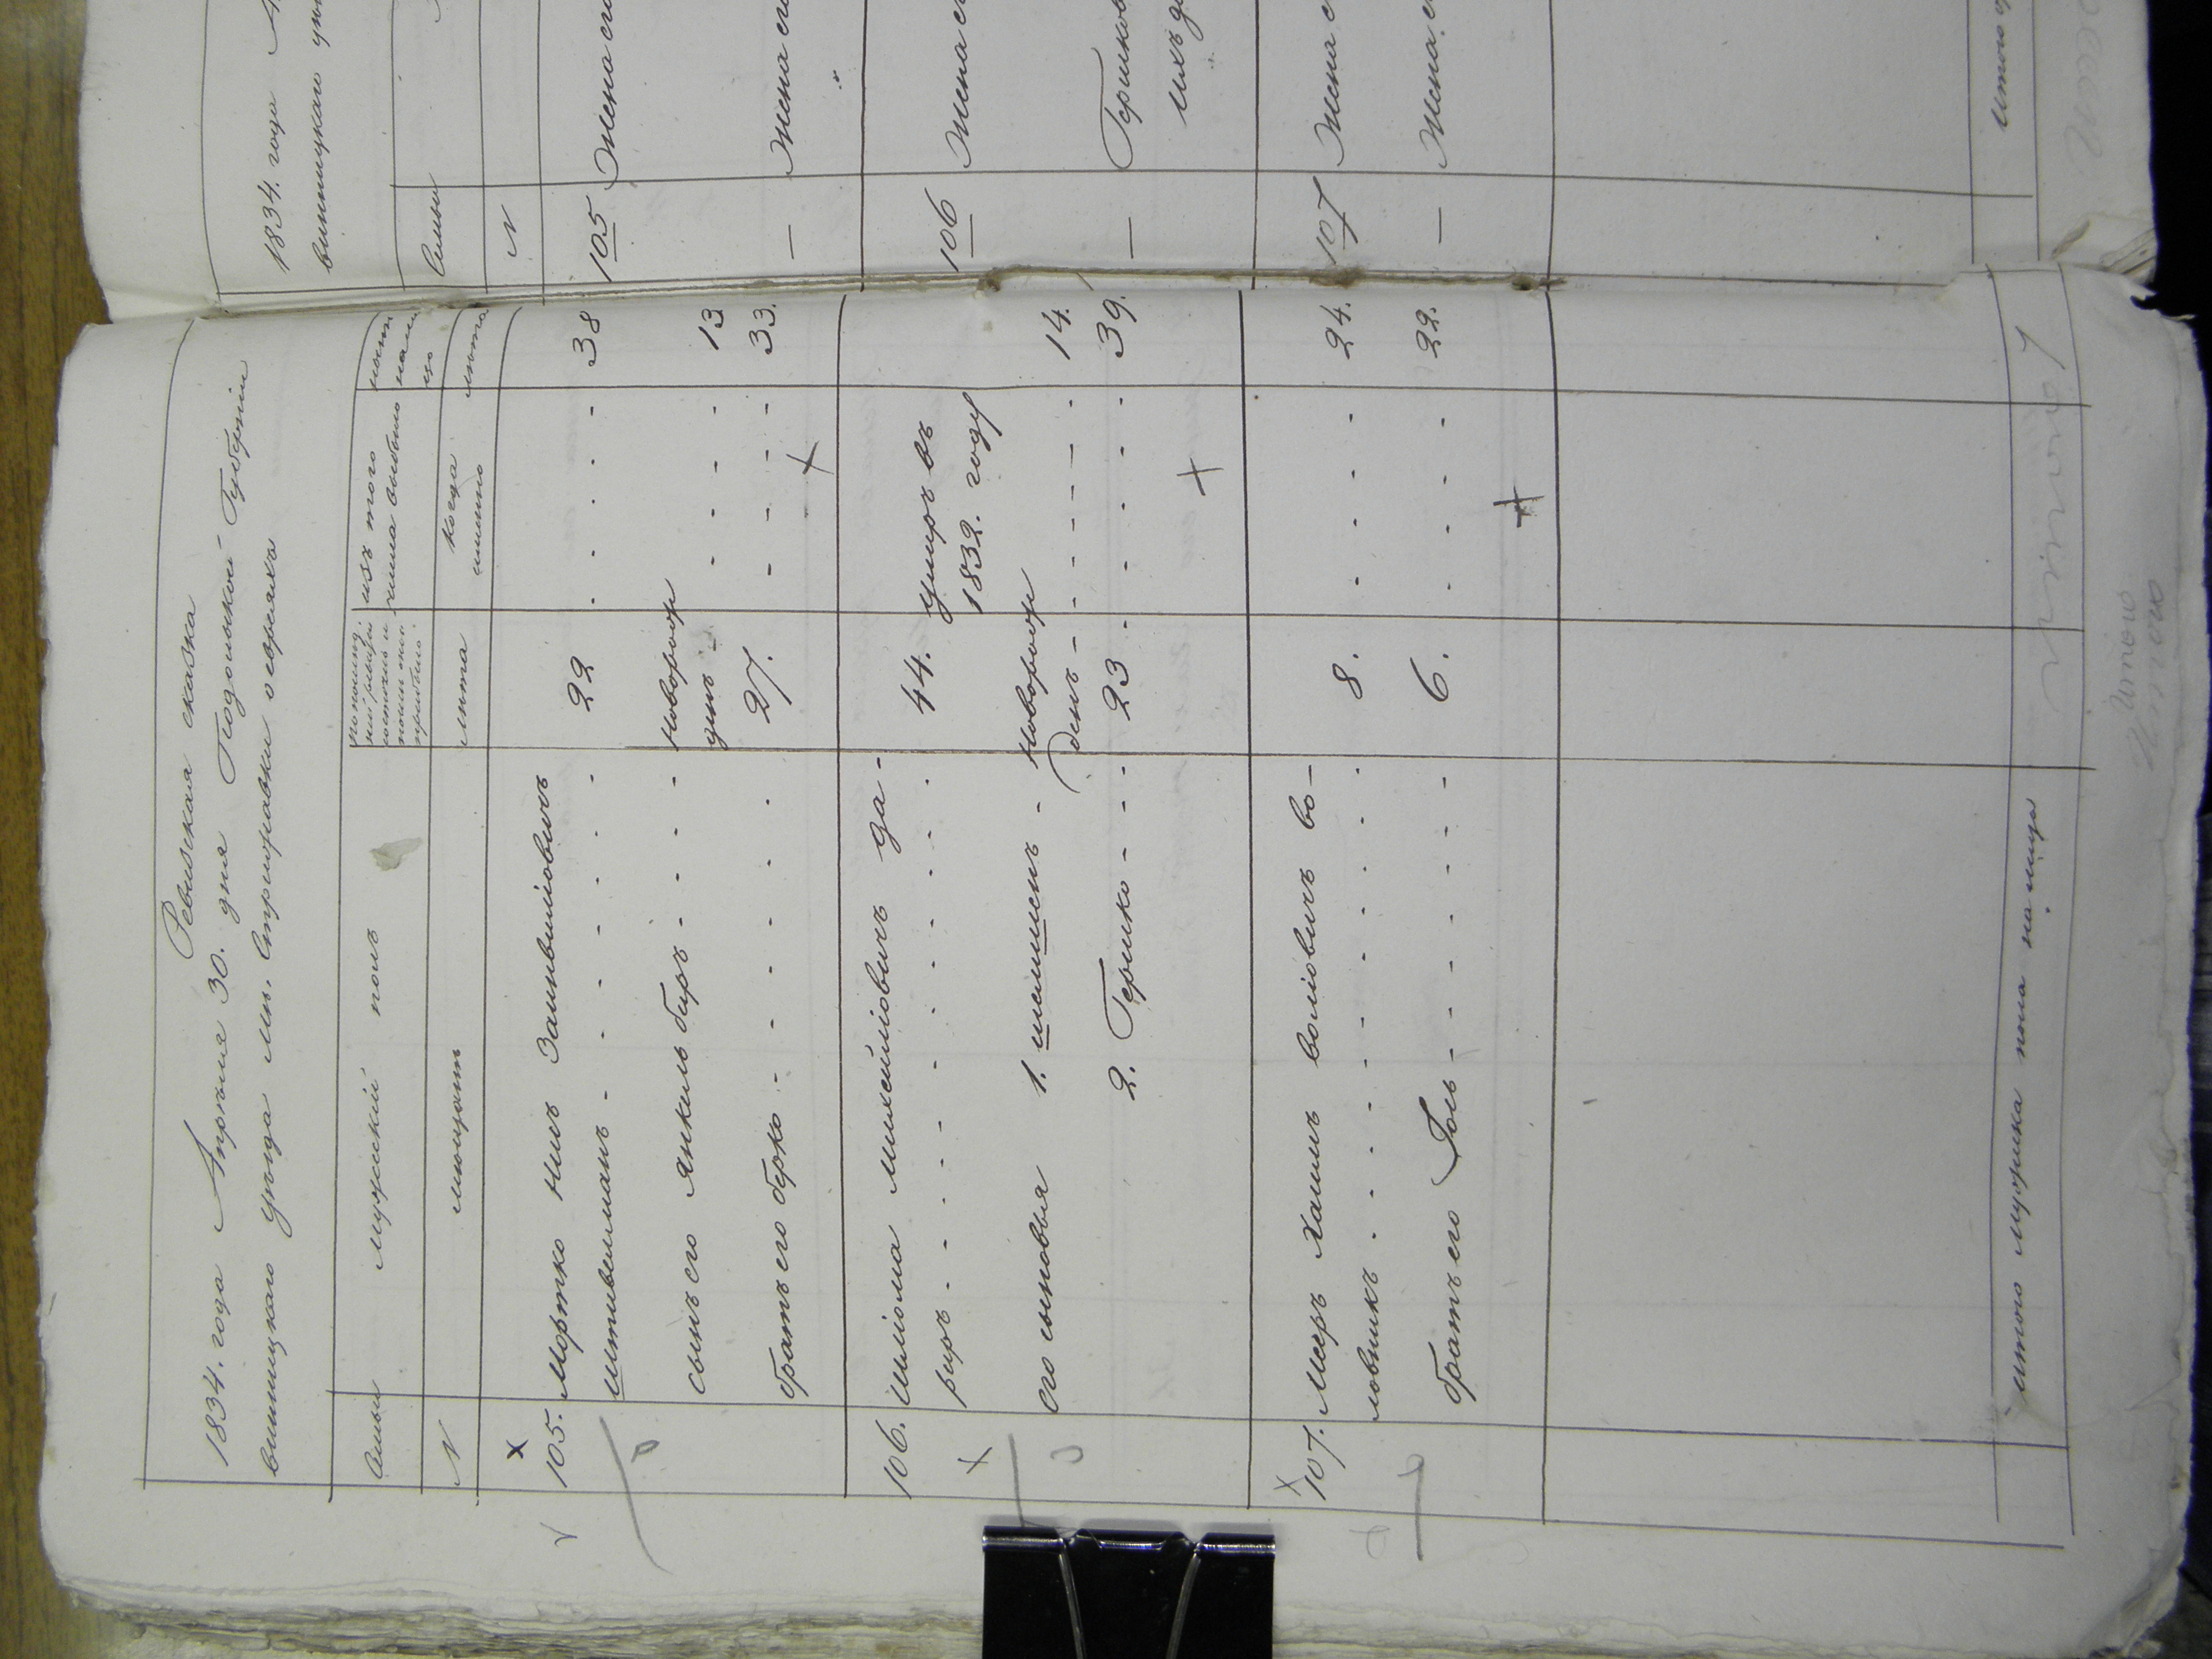 Ревизская сказка
1834. года Апреля 30. дня Подольской Губернии
винницкого уезда м. Стрижавки о евреяхъ
Семьи
мужеский полъ
по последней ревизии состояло и после оной прибыло
изъ того числа выбыло
ныне на лицо
N
мещанъ
лета
когда именно
лета
105. Мортко Нил Занвиліовичъ
штивелманъ - - - - - - 22 - - - - 38
сынъ его Янкиль беръ - - - новорож
денъ - - - - 13
братъ его берко - - - - - 27. - - - - 33.
106. Шліома Михеліовичъ да-
виръ - - - - - - - 44. умеръ въ
1832. году
его сыновья 1. шлименъ - новорож
денъ - - - - - 14.
2. Гершко - - - 23 - - - - 39.
107. Меер Хаимъ воліовичъ во-
ловикъ - - - - - - - 8. - - - - 24.
братъ его Іось - - - - - - 6. - - - - 22.
итого мужеска пола на лицо 7
Итого
1834. года
винницкого уез
Семьи
N
105 Жена его
— Жена его
106 Жена его
— Гершков
ихъ до
107 Жена е
— Жена е
итого